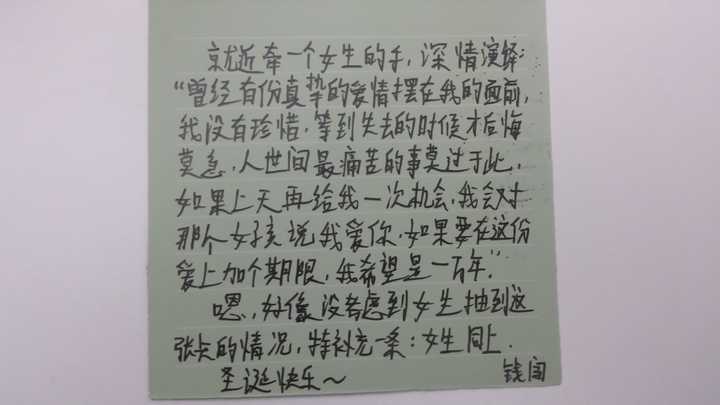 就近牵一个女生的手，深情演绎：
“曾经有份真挚的爱情摆在我的面前，
我没有珍惜，等到失去的时候才后悔
莫急，人世间最痛苦的事莫过于此，
如果上天再给我一次机会，我会对
那个女孩说我爱你，如果要在这份
爱上加个期限，我希望是一万年。”
嗯，好像没考虑到女生抽到这
张卡的情况，特补充一条：女生同上.
圣诞快乐～ 钱闯